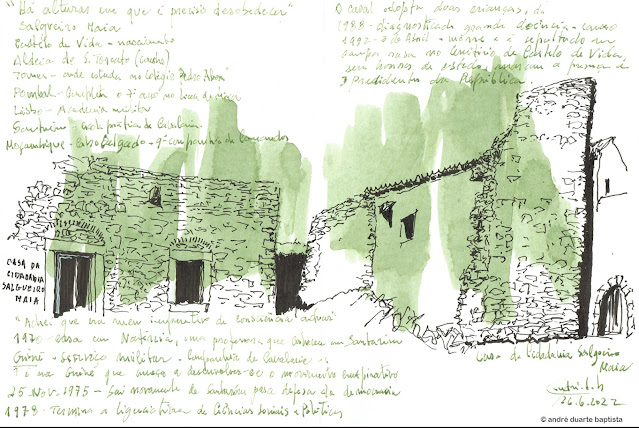 "Há alturas em que é preciso desobedecer"
Salgueiro Maia
Castelo de Vide - nascimento
Aldeia de S. Torcato (Coruche)
Tomar - onde estuda no colégio Pedro
Pombal - completa o 7º ano no liceu de
Lisboa - Academia militar
Santarém - escola prática de Cavalaria
Moçambique - Cabo Delgado - 9ª companhia de Comandos
O casal adopta duas crianças,
1988 - diagnosticada grande doença - cancro
1992 - 3 de Abril - morre e é sepultado em
campa rasa no Cemitério de Castelo de Vide,
sem honras de estado,
3 Presidentes da República.
CASA DA
CIDADANIA
SALGUEIRO
MAIA
"Achei que era meu imperativo de consciência
1970 - casa em Natércia, uma professora que conheceu em Santarém
Guiné - serviço militar - Companhia de Cavalaria
É na Guiné que começa a desenvolver-se o movimento
25 Nov. 1975 - Sai novamente de Santarém para defesa da democracia
1978 - Termina a licenciatura de Ciências Sociais e Políticas
Casa da Cidadania Salgueiro
Maia
26.6.2022
© andré duarte baptista